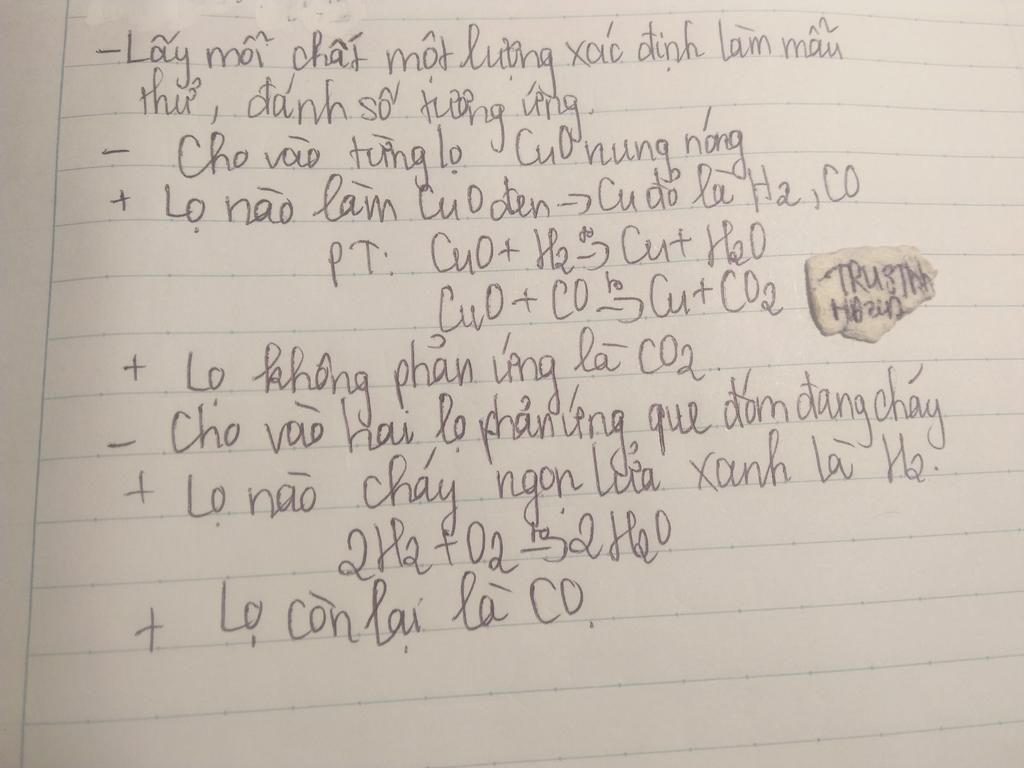 - Lấy mỗi chất một lượng xác định làm mẫu
thử, đánh số tương ứng.
- Cho vào từng lọ CuO nung nóng
+ Lọ nào làm CuO đen → Cu đỏ là H2, CO
PT: CuO + H2 t°→ Cu + H2O
CuO + CO t°→ Cu + CO2
+ Lọ không phản ứng là CO2
- Cho vào hai lọ phản ứng que đóm đang cháy
+ Lọ nào cháy ngọn lửa xanh là H2.
2H2 + O2 t°→ 2H2O
+ Lọ còn lại là CO.